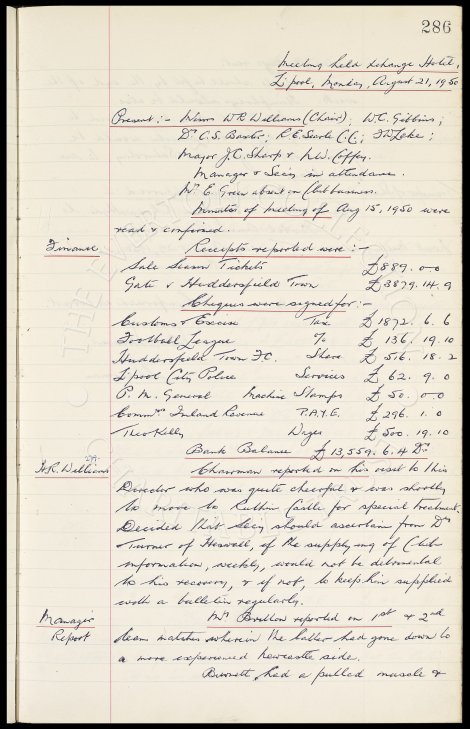 286
Meeting held Exchange Hotel,
L'pool, Monday, August 21, 1950
Present :- Messrs W.R. Williams (Chair); W.C. Gibbins;
Dr C.S. Baxter; R.E. Searle C.C.;
Major J.C. Sharp & N.W. Coffey.
Manager & Secy in attendance.
Mr E. Green absent on Club business.
Minutes of meeting of Aug 15, 1950 were
read & confirmed.
Finance Receipts reported were :-
Sale Season Tickets £889. 0-0
Gate v Huddersfield Town £3879. 14. 9
Cheques were signed for :-
Customs & Excise Tax £1872. 6. 6
Football League % £ 136. 19. 10
Huddersfield Town F.C. Share £ 516. 18. 2
L'pool City Police Services £ 62. 9. 0
P. M. General Machine Stamps £ 50. 0-0
Commrs Inland Revenue P.A.Y.E. £ 296. 1. 0
Theo Kelly Wages £ 500. 19. 10
Bank Balance £ 13,559. 6. 4 Dr
R. Williams Chairman reported on his visit to this
Director who was quite cheerful & was shortly
to move to Ruthin Castle for special treatment.
Decided that Secy should ascertain from Dr
Turner of Heswall, if the supplying of Club
information, weekly, would not be detrimental
to his recovery, & if not, to keep him supplied
with a bulletin regularly.
Manager's Mr Britton reported on 1st & 2nd
Report team matches wherein the latter had gone down to
a more experienced Newcastle side.
Burnett, had a pulled muscle &